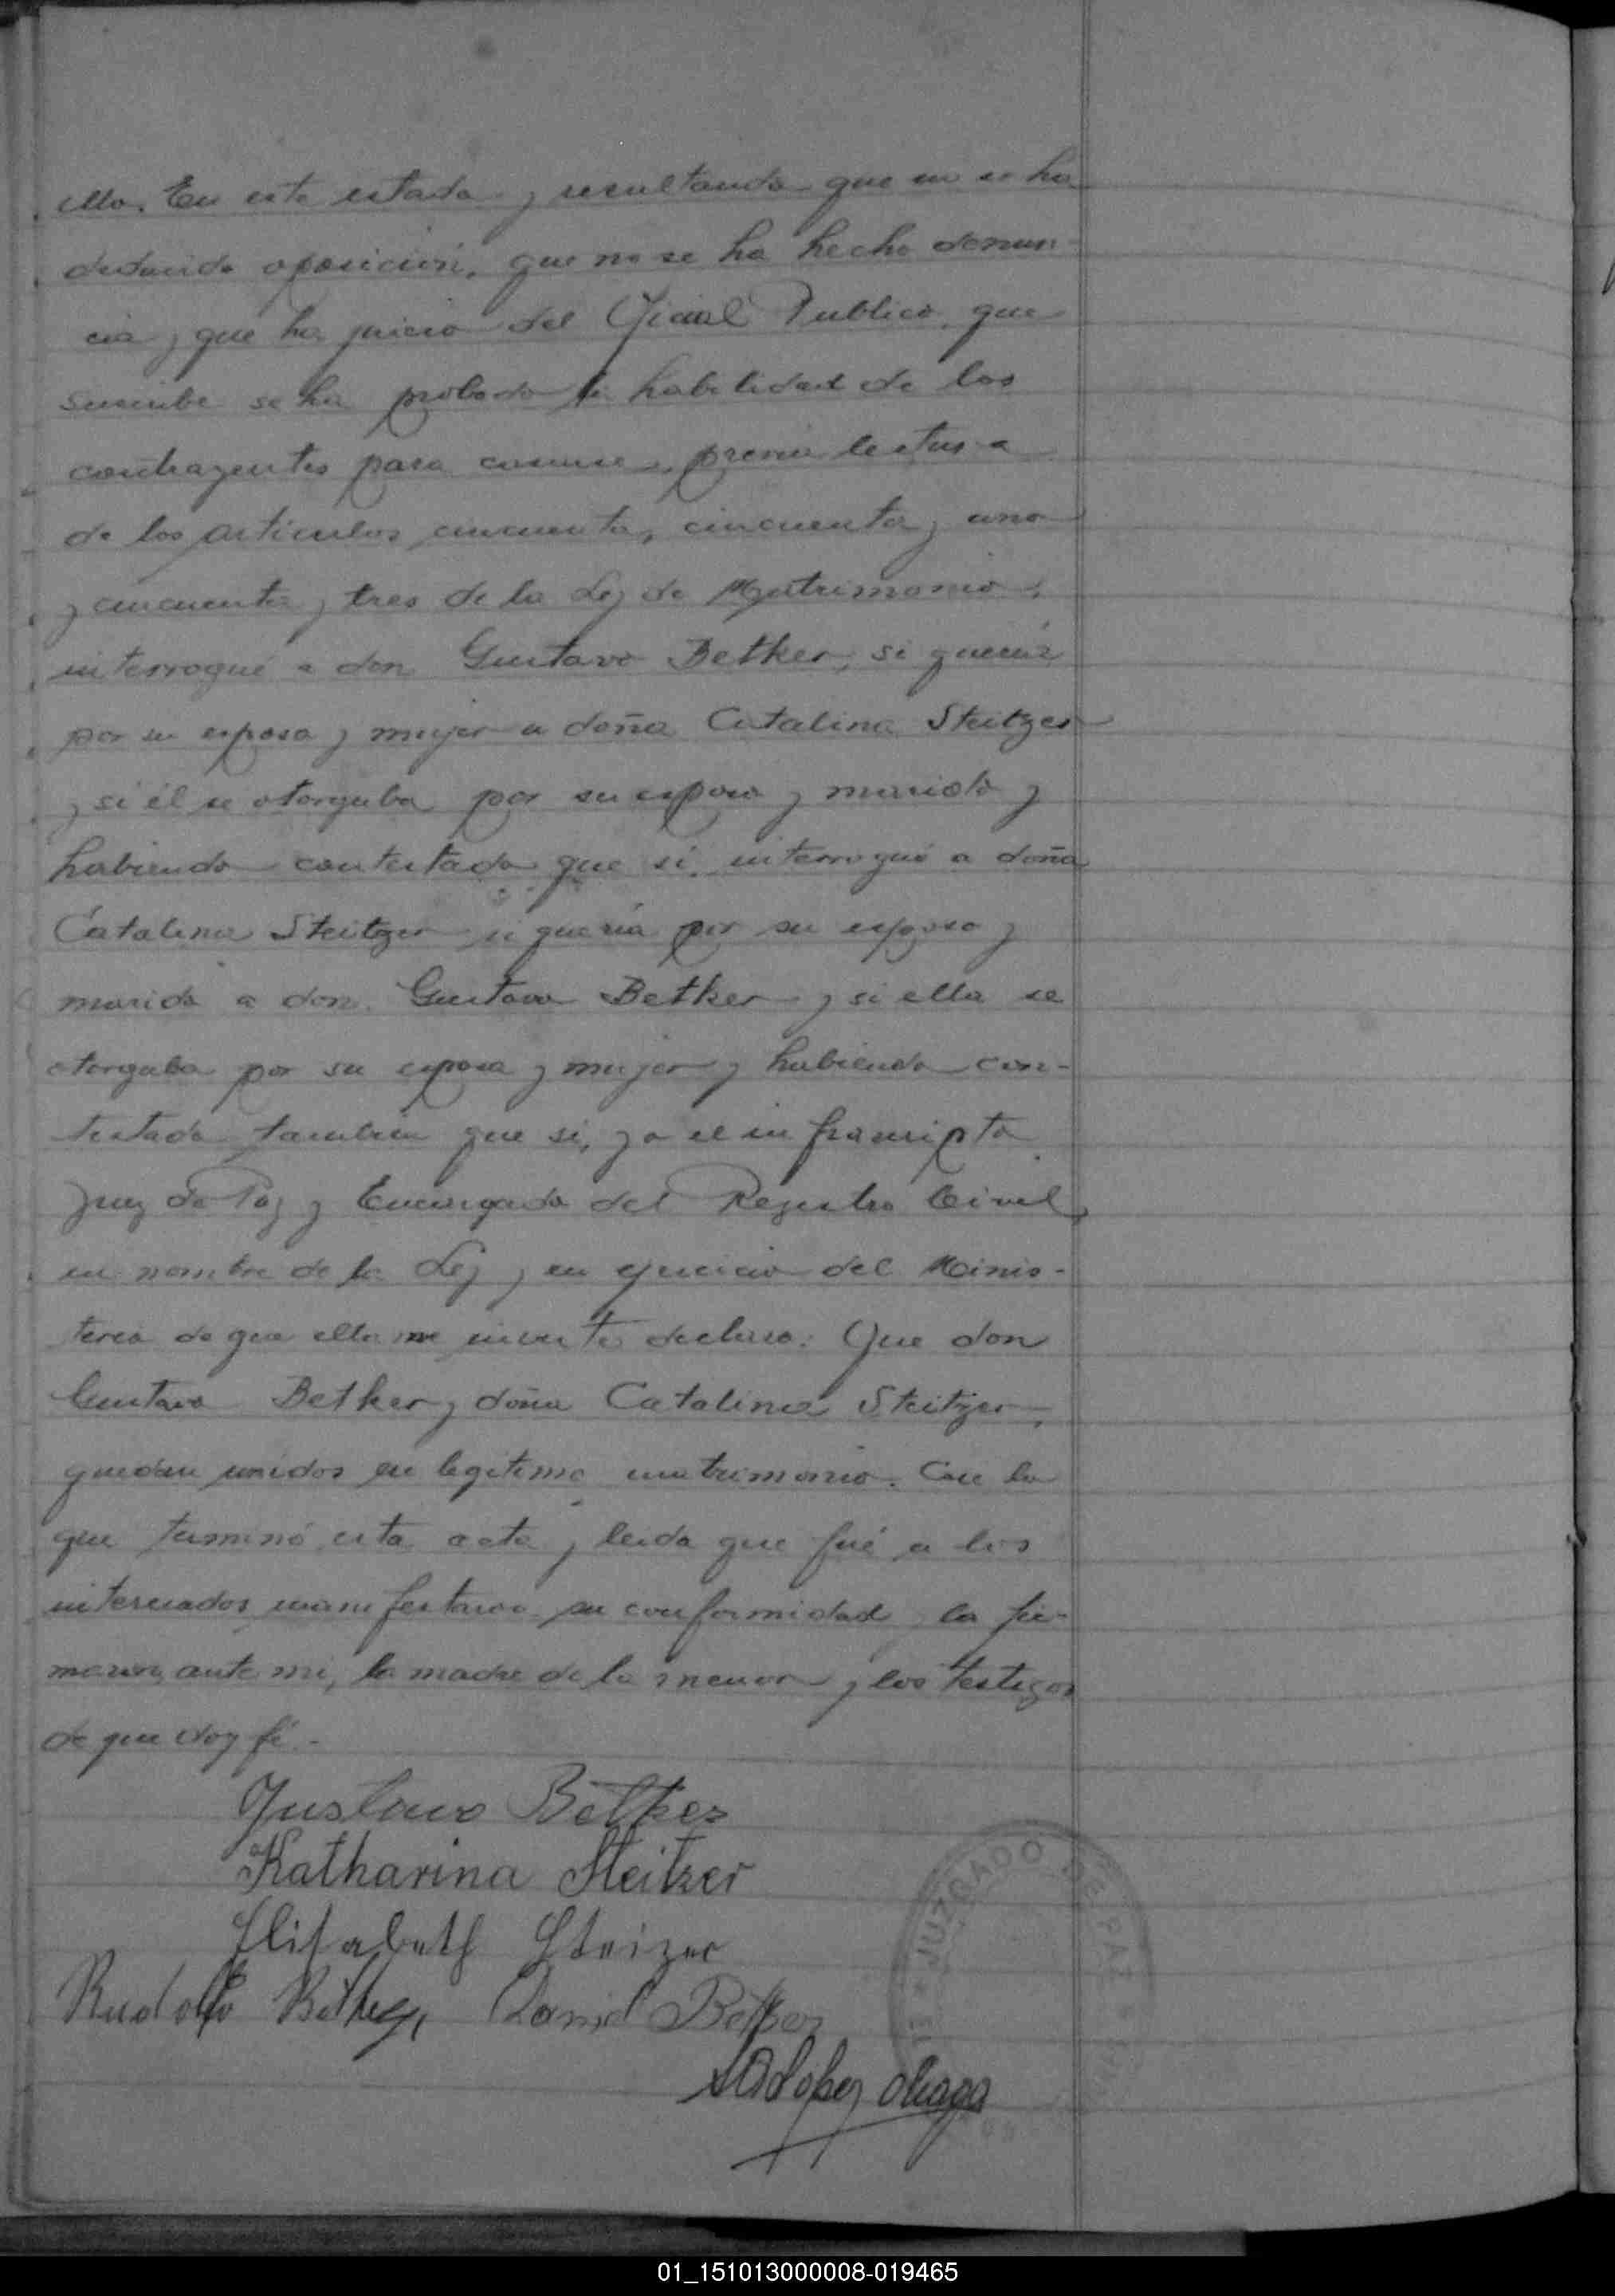 ello. En este estado y resultando que no se ha
deducido oposición, que no se ha hecho denun-
cia y que ha juicio del Oficial Publico que
suscribe se ha probado la habilidad de los
contrayentes para casarse, previa lectura
de los artículos cincuenta, cincuenta y uno
y cincuenta y tres de la Ley de Matrimonio,
interrogué a don Gustavo Betker, si quería
por su esposa y mujer a doña Catalina Steitzer
y si él se otorgaba por su esposo y marido y
habiendo contestado que si, interrogué a doña
Catalina Steitzer si quería por su esposo y
marido a don Gustavo Betker y si ella se
otorgaba por su esposa y mujer y habiendo con-
testado también que si, yo el infrascripto
Juez de Paz y Encargado del Registro Civil,
en nombre de la Ley y en ejercicio del Minis-
terio de que ella me inviste declaro: Que don
Gustavo Betker y doña Catalina Steitzer,
quedan unidos en legitimo matrimonio. Con lo
que terminó esta acta y leida que fué a los
interesados manifestaron su conformidad, la fir-
maron, ante mi, la madre de la menor y los testigos
de que doy fé.-
Gustavo Betker
Katharina Steitzer
Elisabeth Steizer
Rudolfo Daniel Betker
JUZGADO DE PAZ
01_151013000008-019465